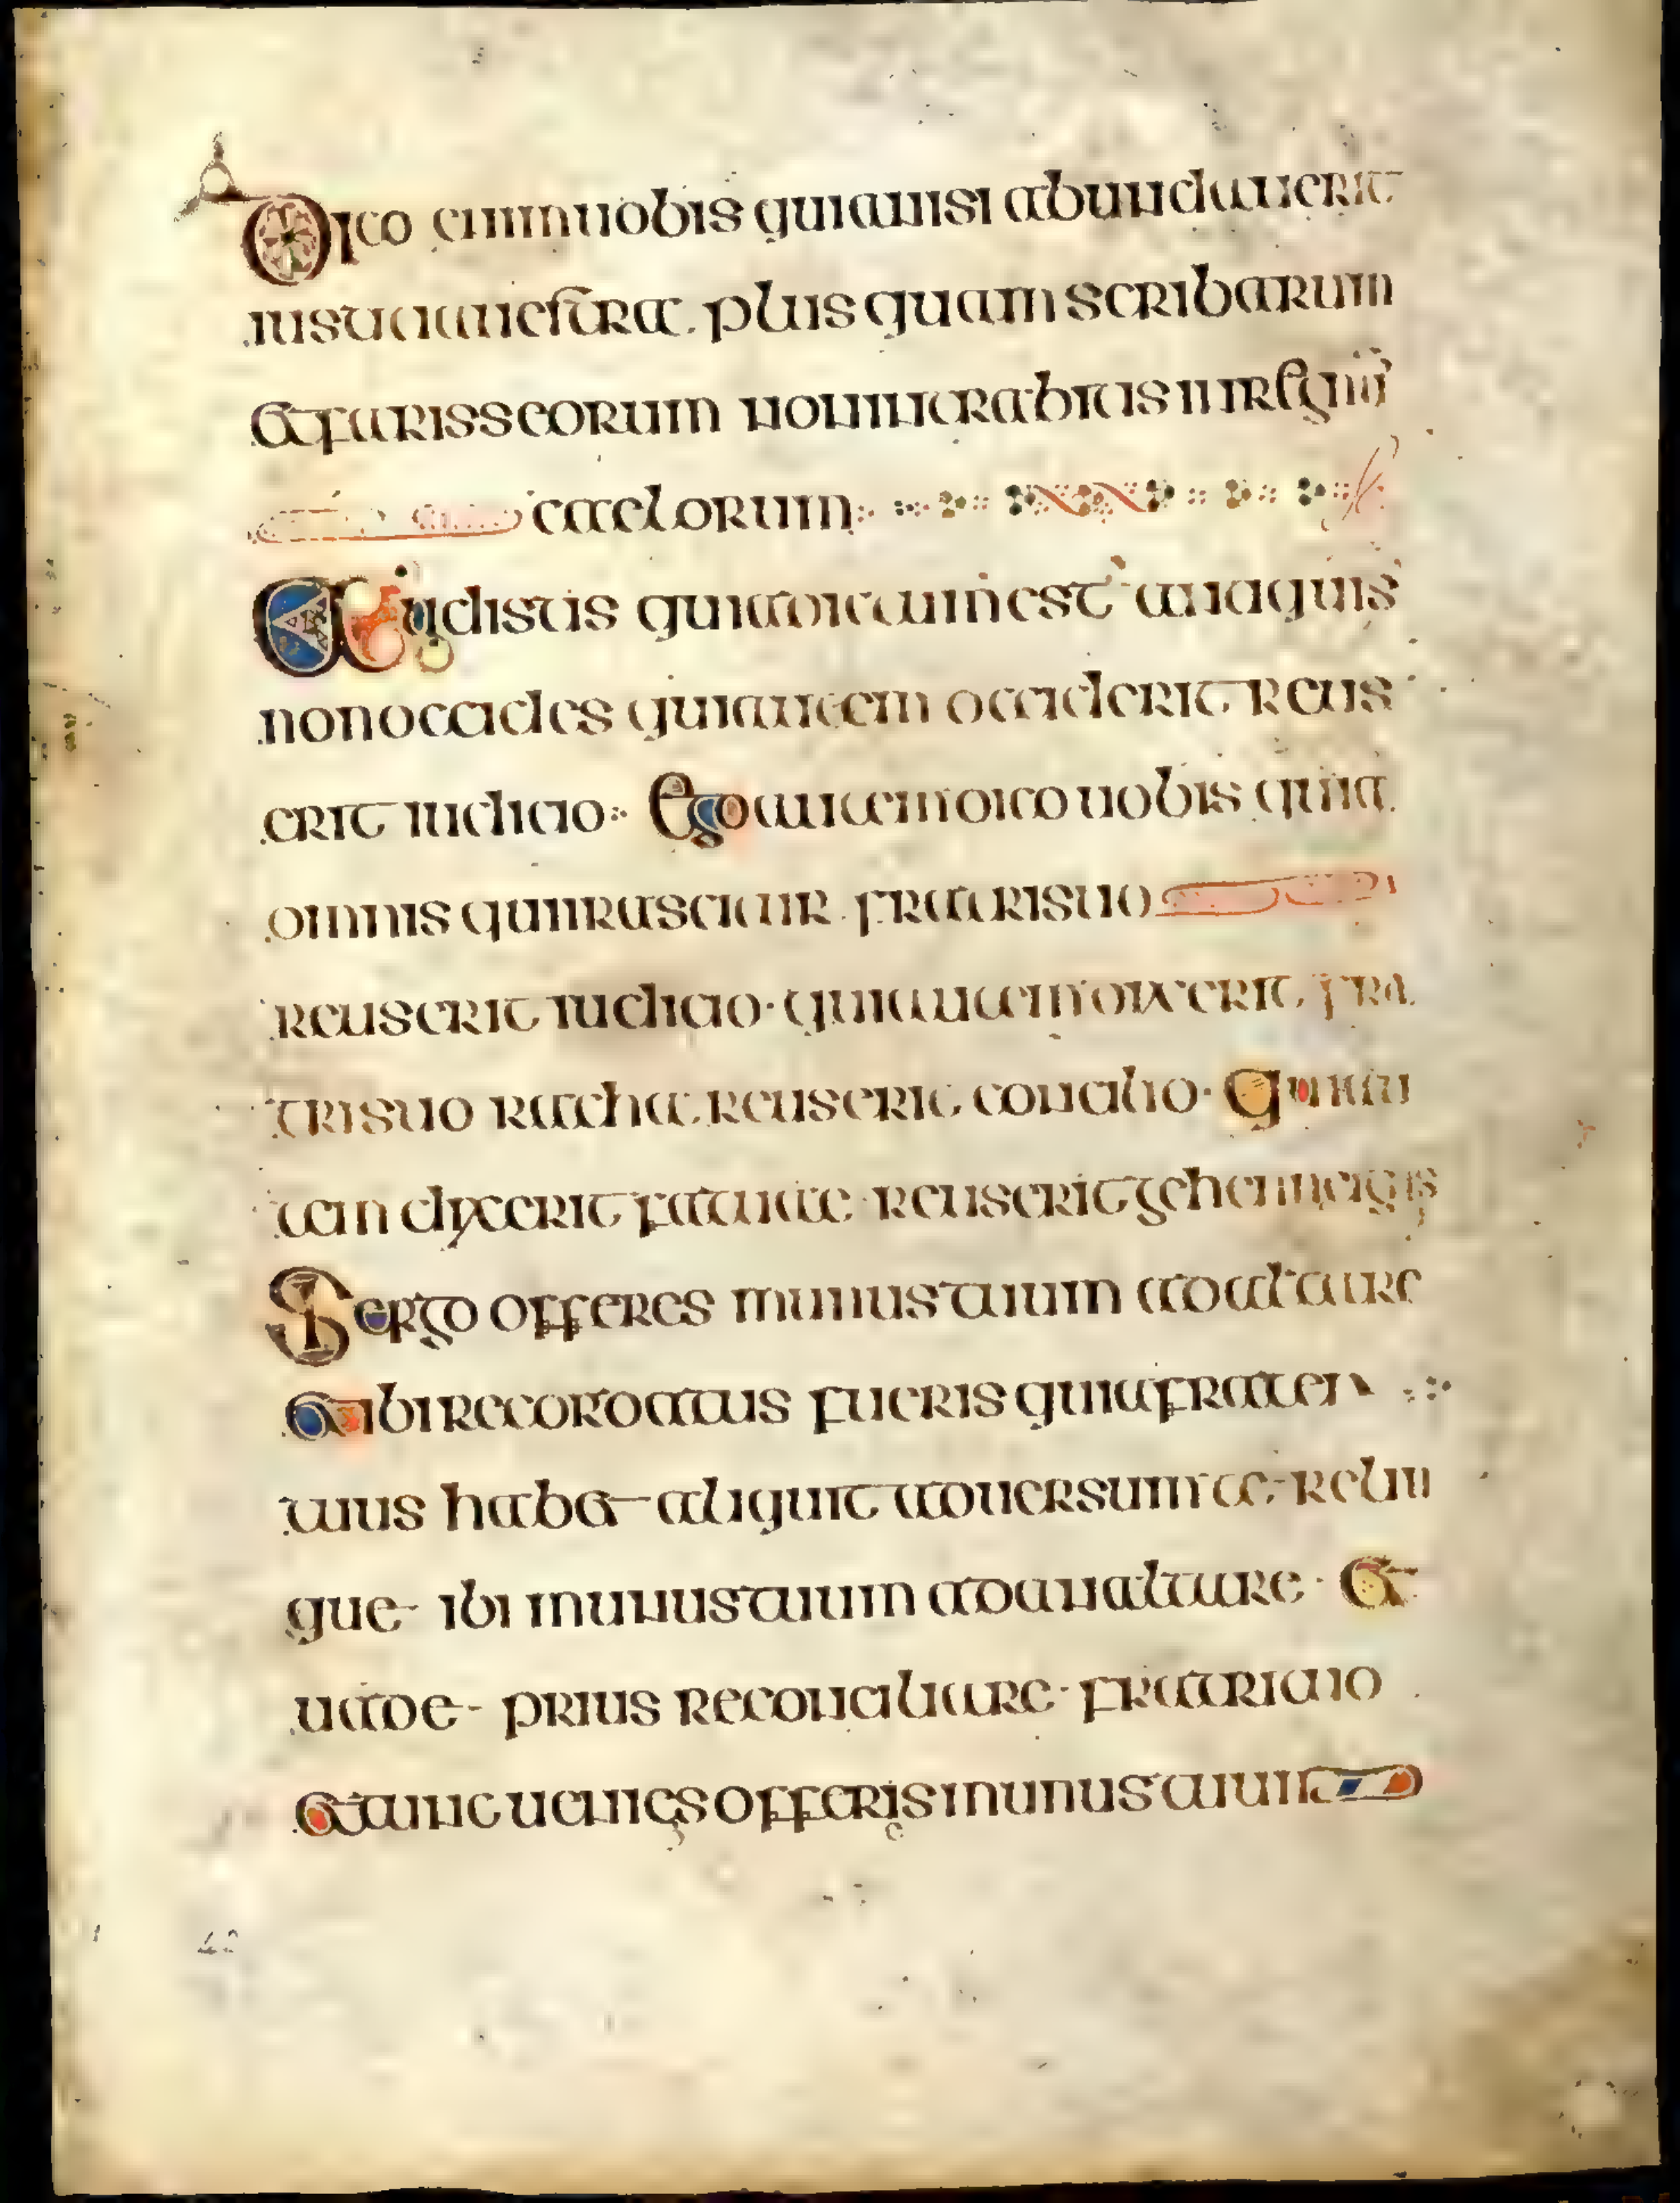 Dico enim uobis quia nisi abundauerit
iustitia uestra plus quam scribarum
et farisseorum non intrabitis in regnū
caelorum
Audistis quia dictum est antiquis
non occides qui autem occiderit reus
erit iudicio Ego autem dico uobis quia
omnis qui irascitur fratri suo
reus erit iudicio · qui autem dixerit fra
tri suo racha reus erit concilio · Qui au
tem dixerit fatuae reus erit gehennae ignis
Si ergo offeres munus tuum ad altare
et ibi recordatus fueris quia frater
tuus habet aliquit aduersum te relin
que ibi munus tuum ad altare · Et
uade prius reconciliare fratri tuo
et tunc ueniens offeris munus tuum